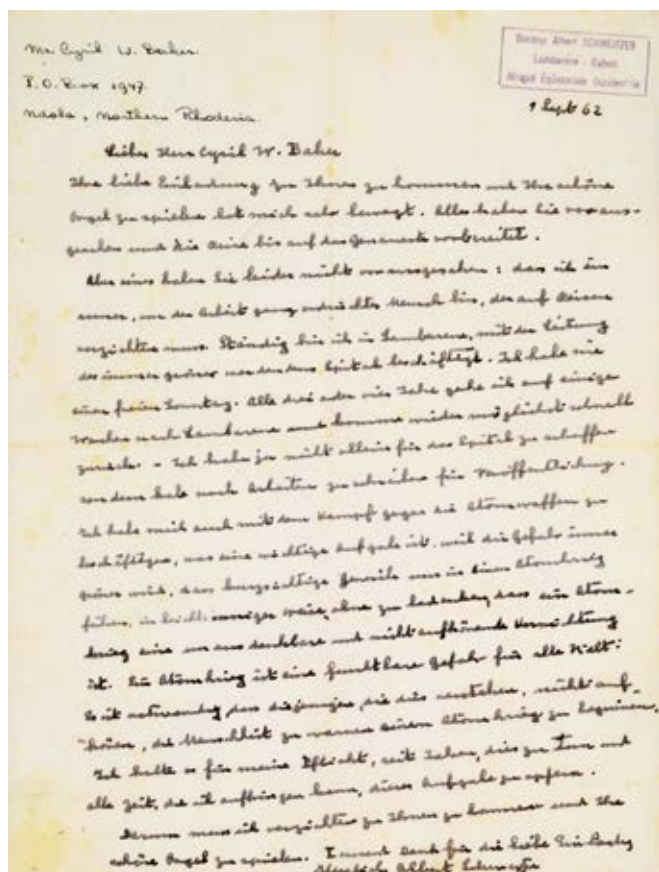 Mr Cyril W. Baker
P.O. Box 1947
Ndola, Northern Rhodesia
Docteur Albert SCHWEITZER
Lambarene - Gabon
Afrique Equatoriale Occident'le
9 Sept 62
Lieber Herr Cyril W. Baker
Ihre liebe Einladung zu Ihnen zu kommen und Ihre schöne
Orgel zu spielen hat mich sehr bewegt. Alles haben Sie voraus-
gesehen und die Reise bis auf das Genaueste vorbereitet.
Aber eines haben Sie leider nicht vorausgesehen: dass ich ein
armer, von der Arbeit ganz erdrückter Mensch bin, der auf Reisen
verzichten muss. Ständig bin ich in Lambarene, mit der Leitung
des immer grösser werdenden Spitals beschäftigt. Ich habe nie
einen freien Sonntag. Alle drei oder vier Jahre gehe ich auf einige
Wochen nach und komme wieder möglichst schnell
zurück. Ich habe ja nicht allein für das Spital zu schaffen
sondern habe noch Arbeiten zu schreiben für Veröffentlichung.
Ich habe mich auch mit dem Kampf gegen die Atomwaffen zu
beschäftigen, was eine wichtige Aufgabe ist, weil die Gefahr immer
grösser wird, dass kurzsichtige uns in einen Atomkrieg
führen, in leichtsinniger Weise, ohne zu bedenken, dass ein Atom-
krieg eine unausdenkbare und nicht aufhörende Vernichtung
ist. Ein Atomkrieg ist eine furchtbare Gefahr für alle Welt.
Es ist notwendig, dass diejenigen, die dies verstehen, nicht auf-
hören, die Menschheit zu warnen einen Atomkrieg zu beginnen.
Ich halte es für meine Pflicht, seit Jahren, dies zu tun und
alle Zeit, die ich aufbringen kann, dieser Aufgabe zu opfern.
Darum muss ich verzichten zu Ihnen zu kommen und Ihre
schöne Orgel zu spielen. Dank für die liebe Einladung
Herzlich Albert Schweitzer